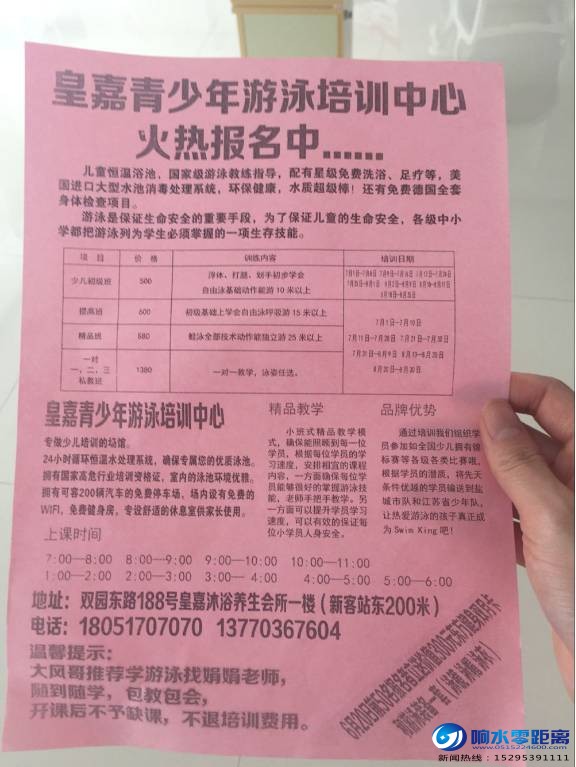 皇嘉青少年游泳培训中心
火热报名中......
儿童恒温浴池、国家级游泳教练指导，配有星级免费洗浴、足疗等，美
国进口大型水池消毒处理系统，环保健康，水质超级棒！还有免费德国全套
身体检查项目。
游泳是保证生命安全的重要手段，为了保证儿童的生命安全，各级中小
学都把游泳列为学生必须掌握的一项生存技能。
项 目 价 格 训练内容 培训日期
少儿初级班 500 浮体、打腿、划手初步学会
自由泳基础动作能游 10 米以上
提高班 600 初级基础上学会自由泳呼吸游 15 米以上
7月1日-7月10日
精品班 880 蛙泳全部技术动作能独立游 25 米以上
7月11日-7月20日 7月21日-7月30日
一对
一、二、三
私教班
1380 一对一教学，泳姿任选。
皇嘉青少年游泳培训中心
专做少儿培训的场馆。
24小时循环恒温水处理系统，确保专属您的优质泳池。
拥有国家高危行业培训资格证，室内的泳池环境优雅。
拥有可容200辆汽车的免费停车场，场内设有免费的
WIFI，免费健身房，专设舒适的休息室供家长使用。
精品教学
小班式精品教学模
式，确保能照顾到每一位
学员，根据每位学员的学
习速度，安排相宜的课程
内容，一方面确保每位学
员能够很好的掌握游泳技
能，老师手把手教学。另
一方面可以提升学员学习
速度，可以有效的保证每
位小学员人身安全。
品牌优势
通过培训我们组织学
员参加如全国少儿拥有锦
标赛等各级各类比赛哦，
根据学员的潜质，将先天
条件优越的学员输送到盐
城市队和江苏省少年队，
让热爱游泳的孩子真正成
为 Swim Xing 吧！
上课时间
7:00—8:00 8:00—9:00 9:00—10:00 10:00—11:00
1:00—2:00 2:00—3:00 3:00—4:00 4:00—5:00 5:00—6:00
地址：双园东路188号皇嘉沐浴养生会所一楼（新客站东200米）
电话：18051707070 13770367604
温馨提示：
大风哥推荐学游泳找娟娟老师，
随到随学，包教包会，
开课后不予缺课，不退培训费用。
响水零距离
www.0515224600.com
新闻热线：15295391111